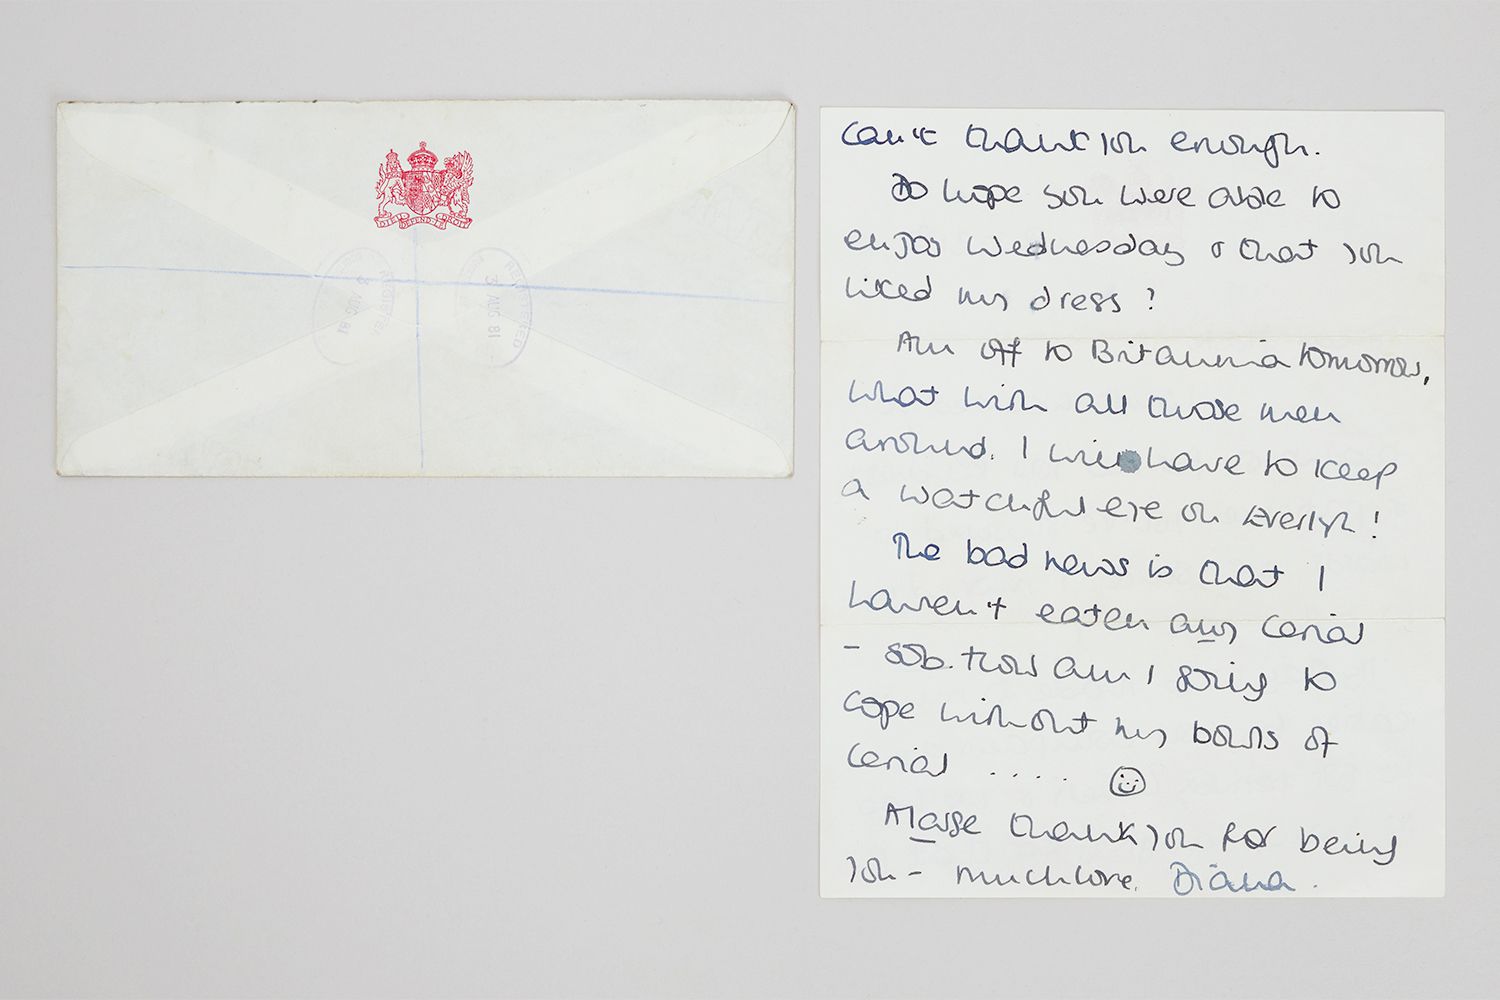 DIEU DEFEND LE DROIT
REGISTERED
3 AUG 81
REGISTERED
3 AUG 81
can't thank you enough.
Do hope you were able to
enjoy Wednesday & that you
liked my dress?
Am off to Britannia tomorrow,
what with all those men
around. I will have to keep
a watchful eye on Everlyn!
The bad news is that I
haven't eaten any cerial
- sob. How am I going to
cope without my bowls of
cerial .....
A large thank you for being
you - much love, Diana.